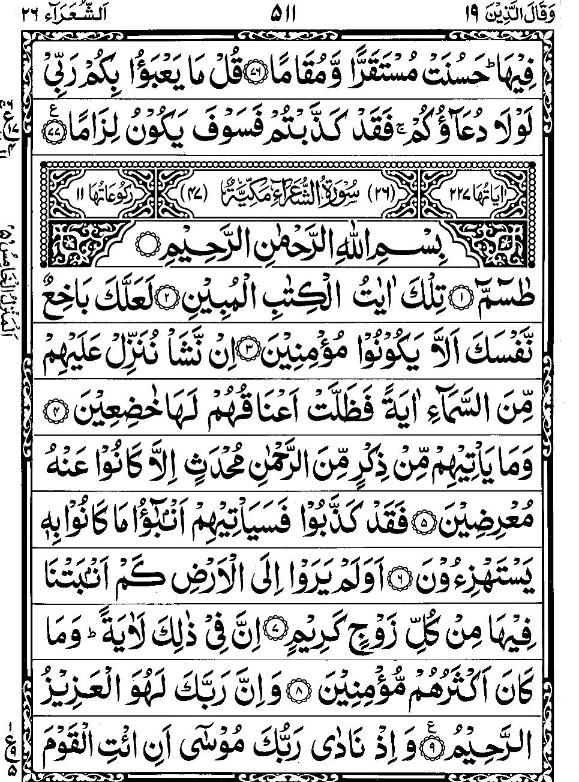 وَقَالَ الَّذِيْنَ ١٩ ٥١١ اَلشُّعَرَآء ٢٦
فِيْهَا ؕ حَسُنَتْ مُسْتَقَرًّا وَّمُقَامًا ﴿۷۶﴾ قُلْ مَا يَعْبَؤُا بِكُمْ رَبِّيْ
لَوْلَا دُعَآؤُكُمْ ۚ فَقَدْ كَذَّبْتُمْ فَسَوْفَ يَكُوْنُ لِزَامًا ﴿۷۷﴾ ع
اٰيَاتُهَا ٢٢٧ (٢٦) سُوْرَةُ الشُّعَرَآءِ مَكِّيَّةٌ (٤٧) رُكُوْعَاتُهَا ١١
بِسْمِ اللّٰهِ الرَّحْمٰنِ الرَّحِيْمِ
طٰسٓمّٓ ﴿۱﴾ تِلْكَ اٰيٰتُ الْكِتٰبِ الْمُبِيْنِ ﴿۲﴾ لَعَلَّكَ بَاخِعٌ
نَّفْسَكَ اَلَّا يَكُوْنُوْا مُؤْمِنِيْنَ ﴿۳﴾ اِنْ نَّشَاْ نُنَزِّلْ عَلَيْهِمْ
مِّنَ السَّمَآءِ اٰيَةً فَظَلَّتْ اَعْنَاقُهُمْ لَهَا خٰضِعِيْنَ ﴿۴﴾
وَمَا يَاْتِيْهِمْ مِّنْ ذِكْرٍ مِّنَ الرَّحْمٰنِ مُحْدَثٍ اِلَّا كَانُوْا عَنْهُ
مُعْرِضِيْنَ ﴿۵﴾ فَقَدْ كَذَّبُوْا فَسَيَاْتِيْهِمْ اَنْۢبٰٓؤُا مَا كَانُوْا بِهٖ
يَسْتَهْزِءُوْنَ ﴿۶﴾ اَوَلَمْ يَرَوْا اِلَى الْاَرْضِ كَمْ اَنْۢبَتْنَا
فِيْهَا مِنْ كُلِّ زَوْجٍ كَرِيْمٍ ﴿۷﴾ اِنَّ فِيْ ذٰلِكَ لَاٰيَةً ؕ وَمَا
كَانَ اَكْثَرُهُمْ مُّؤْمِنِيْنَ ﴿۸﴾ وَاِنَّ رَبَّكَ لَهُوَ الْعَزِيْزُ
الرَّحِيْمُ ﴿۹﴾ ع وَاِذْ نَادٰى رَبُّكَ مُوْسٰٓى اَنِ ائْتِ الْقَوْمَ
اَلْمَنْزِلُ الْخَامِسُ ٥